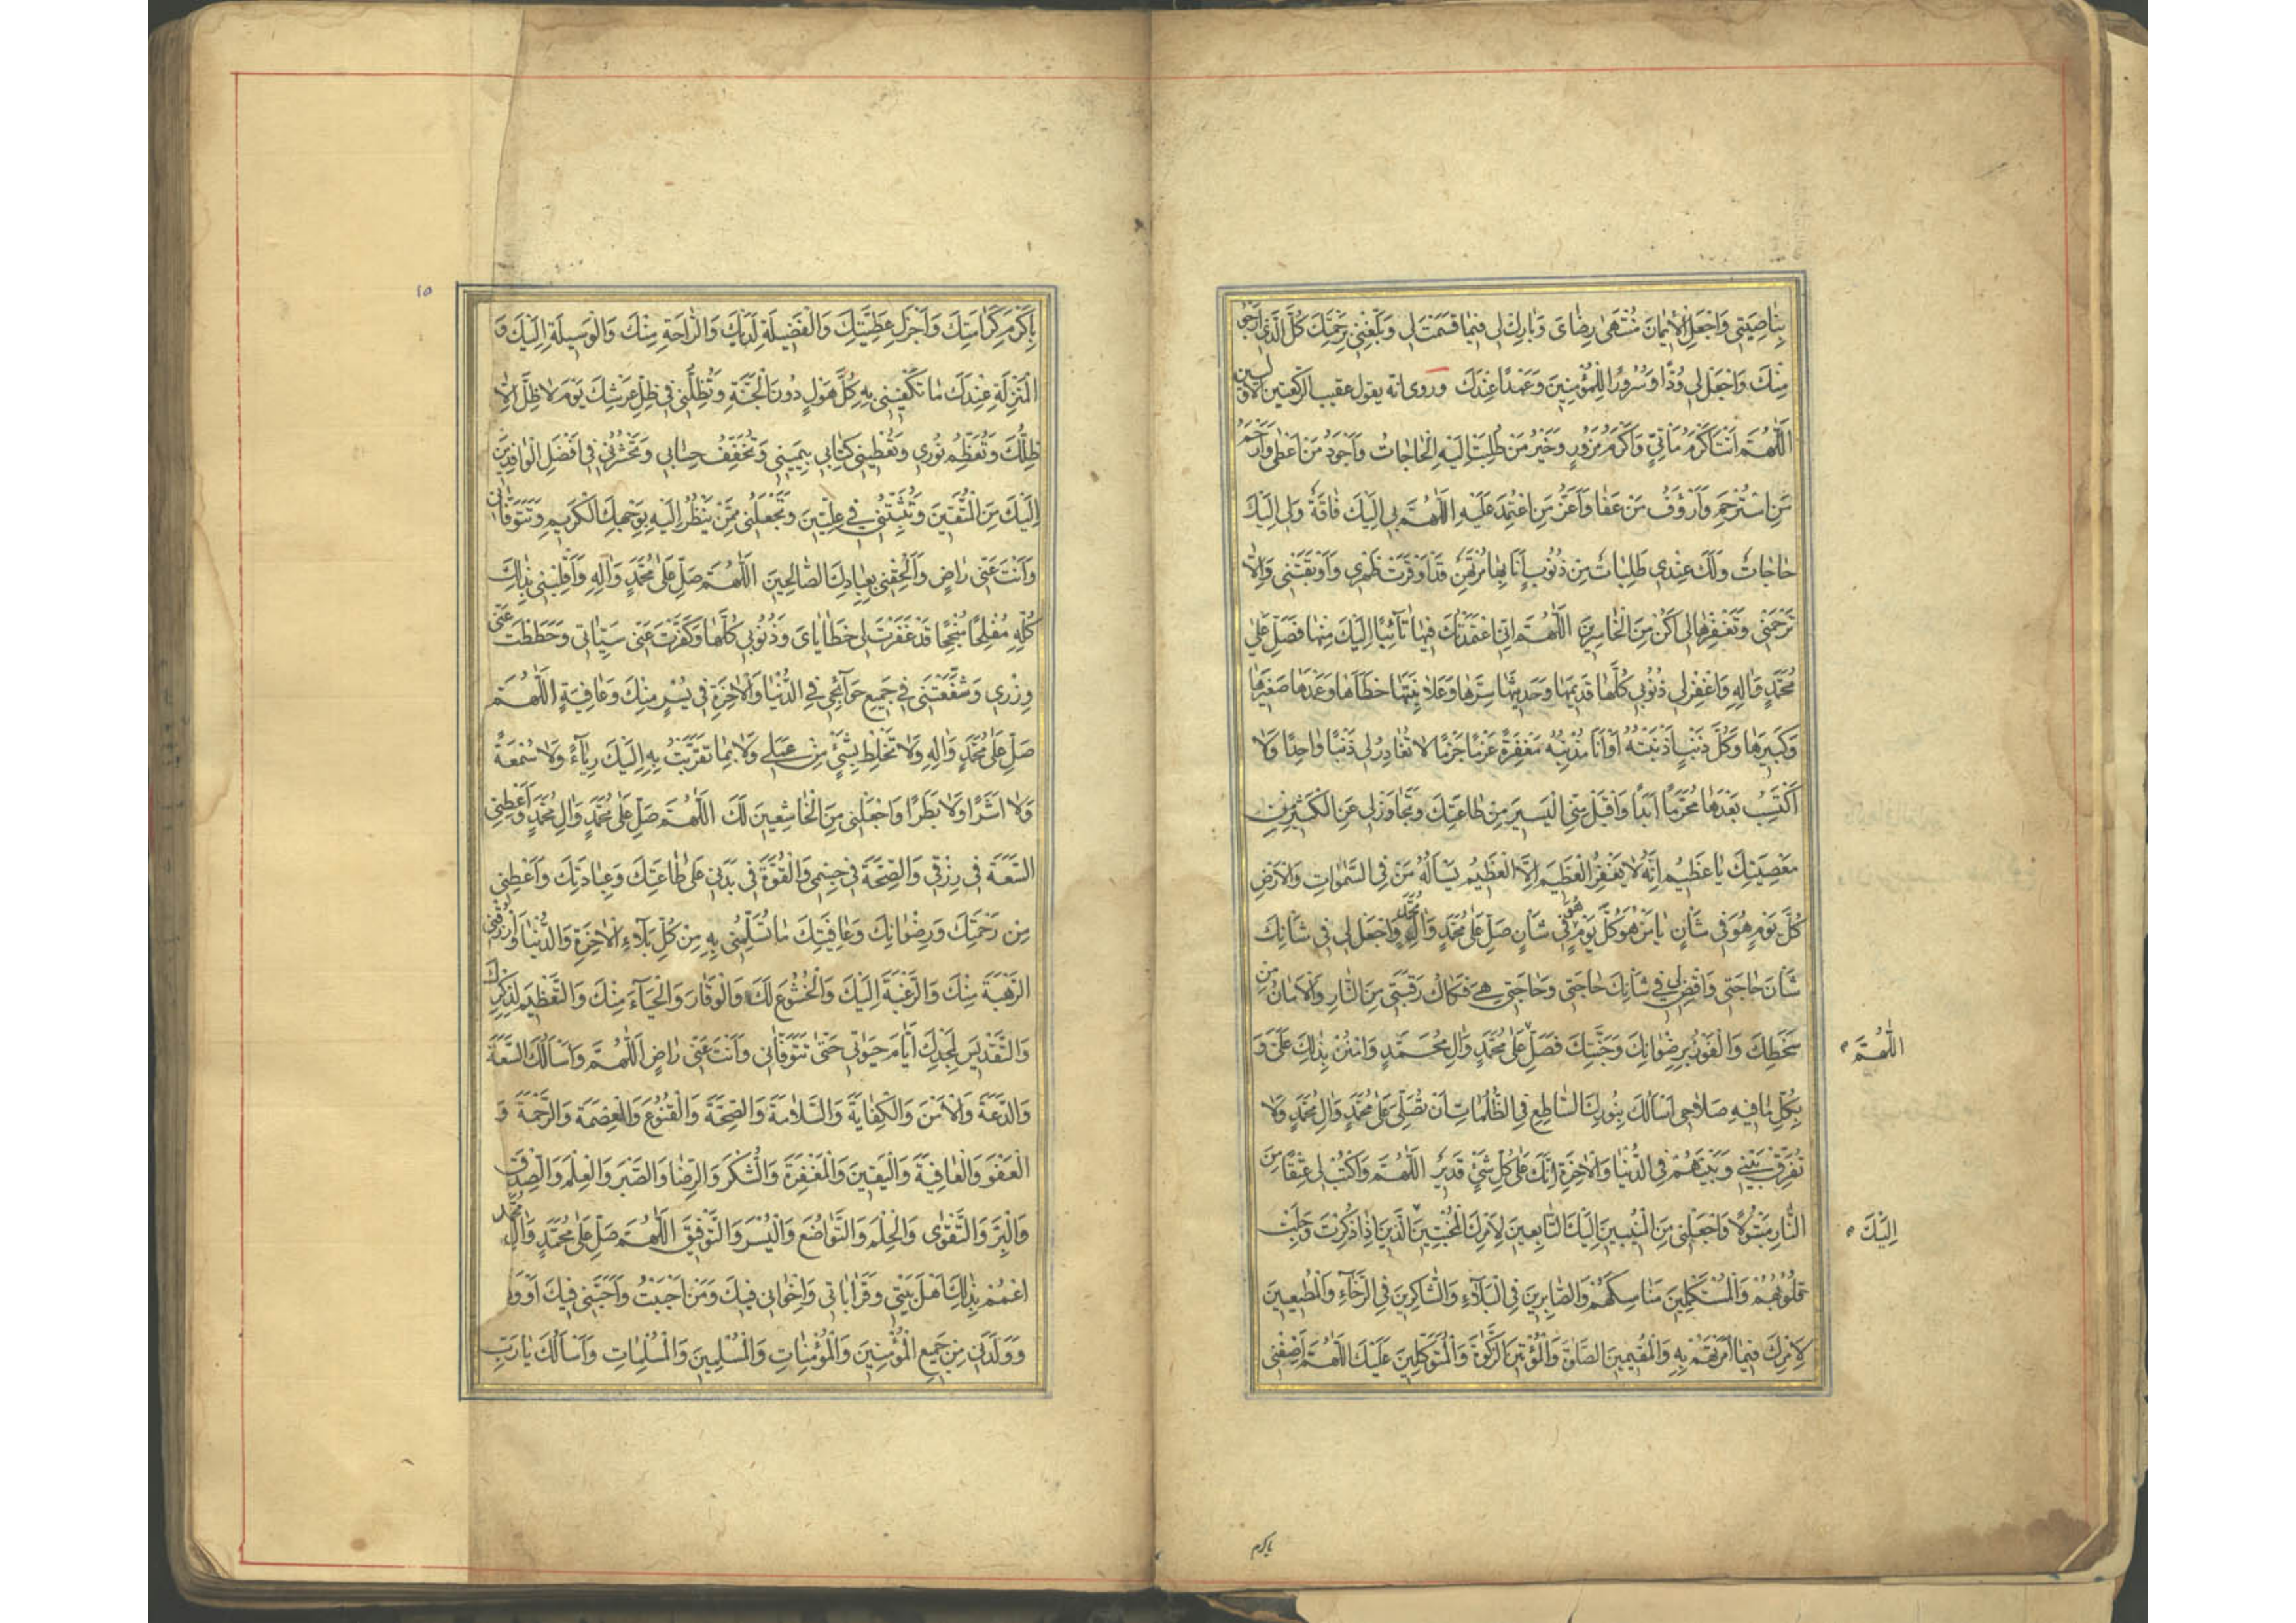 بِنَاصِيَتِي وَاجْعَلِ الْإِيمَانَ مُنْتَهَىٰ رِضَايَ وَبَارِكْ لِي فِيمَا قَسَمْتَ لِي وَبَلِّغْنِي بِرَحْمَتِكَ كُلَّ الَّذِي أَرْجُو
مِنْكَ وَاجْعَلْ لِي وُدًّا وَسُرُورًا لِلْمُؤْمِنِينَ وَعَهْدًا عِنْدَكَ وروى انه يقول عقيب الركعتين الاوليين
اَللّٰهُمَّ أَنْتَ أَكْرَمُ مَأْتِيٍّ وَأَكْرَمُ مَزُورٍ وَخَيْرُ مَنْ طُلِبَتْ إِلَيْهِ الْحَاجَاتُ وَأَجْوَدُ مَنْ أَعْطَى وَأَرْحَمُ
مَنِ اسْتُرْحِمَ وَأَرْؤَفُ مَنْ عَفَا وَأَعَزُّ مَنِ اعْتُمِدَ عَلَيْهِ اَللّٰهُمَّ بِي إِلَيْكَ فَاقَةٌ وَلِي إِلَيْكَ
حَاجَاتٌ وَلَكَ عِنْدِي طَلِبَاتٌ مِنْ ذُنُوبٍ أَنَا بِهَا مُرْتَهَنٌ قَدْ أَوْقَرَتْ ظَهْرِي وَأَوْبَقَتْنِي وَإِلَّا
تَرْحَمْنِي وَتَغْفِرْهَا لِي أَكُنْ مِنَ الْخَاسِرِينَ اَللّٰهُمَّ إِنِّي اعْتَمَدْتُكَ فِيهَا تَائِبًا إِلَيْكَ مِنْهَا فَصَلِّ عَلَى
مُحَمَّدٍ وَآلِهِ وَاغْفِرْ لِي ذُنُوبِي كُلَّهَا قَدِيمَهَا وَحَدِيثَهَا سِرَّهَا وَعَلَانِيَتَهَا خَطَأَهَا وَعَمْدَهَا صَغِيرَهَا
وَكَبِيرَهَا وَكُلَّ ذَنْبٍ أَذْنَبْتُهُ أَوْ أَنَا مُذْنِبُهُ مَغْفِرَةً عَزْمًا جَزْمًا لَا تُغَادِرُ لِي ذَنْبًا وَاحِدًا وَلَا
أَكْتَسِبُ بَعْدَهَا مُحَرَّمًا أَبَدًا وَاقْبَلْ مِنِّي الْيَسِيرَ مِنْ طَاعَتِكَ وَتَجَاوَزْ لِي عَنِ الْكَثِيرِ مِنْ
مَعْصِيَتِكَ يَا عَظِيمُ إِنَّهُ لَا يَغْفِرُ الْعَظِيمَ إِلَّا الْعَظِيمُ يَسْأَلُهُ مَنْ فِي السَّمَوَاتِ وَالْأَرْضِ
كُلَّ يَوْمٍ هُوَ فِي شَأْنٍ يَا مَنْ هُوَ كُلَّ يَوْمٍ هُوَ فِي شَأْنٍ صَلِّ عَلَى مُحَمَّدٍ وَآلِ مُحَمَّدٍ وَاجْعَلْ لِي فِي شَأْنِكَ
شَأْنَ حَاجَتِي وَاقْضِ لِي فِي شَأْنِكَ حَاجَتِي وَحَاجَتِي هِيَ فَكَاكُ رَقَبَتِي مِنَ النَّارِ وَالْأَمَانُ مِنْ
سَخَطِكَ وَالْفَوْزُ بِرِضْوَانِكَ وَجَنَّتِكَ فَصَلِّ عَلَى مُحَمَّدٍ وَآلِ مُحَمَّدٍ وَامْنُنْ بِذَلِكَ عَلَيَّ وَ
اَللّٰهُمَّ
بِكُلِّ مَا فِيهِ صَلَاحِي أَسْأَلُكَ بِنُورِكَ السَّاطِعِ فِي الظُّلُمَاتِ أَنْ تُصَلِّيَ عَلَى مُحَمَّدٍ وَآلِ مُحَمَّدٍ وَلَا
تُفَرِّقْ بَيْنِي وَبَيْنَهُمْ فِي الدُّنْيَا وَالْآخِرَةِ إِنَّكَ عَلَى كُلِّ شَيْءٍ قَدِيرٌ اَللّٰهُمَّ وَاكْتُبْ لِي عِتْقًا مِنَ
النَّارِ مَبْتُولًا وَاجْعَلْنِي مِنَ الْمُنِيبِينَ إِلَيْكَ التَّابِعِينَ لِأَمْرِكَ الْمُخْبِتِينَ الَّذِينَ إِذَا ذُكِرْتَ وَجِلَتْ
إِلَيْكَ
قُلُوبُهُمْ وَالْمُسْتَكْمِلِينَ مَنَاسِكَهُمْ وَالصَّابِرِينَ فِي الْبَلَاءِ وَالشَّاكِرِينَ فِي الرَّخَاءِ وَالْمُطِيعِينَ
لِأَمْرِكَ فِيمَا أَمَرْتَهُمْ بِهِ وَالْمُقِيمِينَ الصَّلَوةَ وَالْمُؤْتِينَ الزَّكَوةَ وَالْمُتَوَكِّلِينَ عَلَيْكَ اَللّٰهُمَّ أَضِفْنِي
باكرم
١٥
بِأَكْرَمِ كَرَامَتِكَ وَأَجْزِلْ عَطِيَّتِكَ وَالْفَضِيلَةِ لَدَيْكَ وَالرَّاحَةِ مِنْكَ وَالْوَسِيلَةِ إِلَيْكَ وَ
الْمَنْزِلَةِ عِنْدَكَ مَا تَكْفِينِي بِهِ كُلَّ هَوْلٍ دُونَ الْجَنَّةِ وَتُظِلَّنِي فِي ظِلِّ عَرْشِكَ يَوْمَ لَا ظِلَّ إِلَّا
ظِلُّكَ وَتُعَظِّمُ نُورِي وَتُعْطِينِي كِتَابِي بِيَمِينِي وَتُخَفِّفُ حِسَابِي وَتَحْشُرُنِي فِي أَفْضَلِ الْوَافِدِينَ
إِلَيْكَ مِنَ الْمُتَّقِينَ وَتُثَبِّتُنِي فِي عِلِّيِّينَ وَتَجْعَلُنِي مِمَّنْ يَنْظُرُ إِلَيْهِ بِوَجْهِكَ الْكَرِيمِ وَتَتَوَفَّانِي
وَأَنْتَ عَنِّي رَاضٍ وَأَلْحِقْنِي بِعِبَادِكَ الصَّالِحِينَ اَللّٰهُمَّ صَلِّ عَلَى مُحَمَّدٍ وَآلِهِ وَاقْلِبْنِي بِذَلِكَ
كُلِّهِ مُفْلِحًا مُنْجِحًا قَدْ غَفَرْتَ لِي خَطَايَايَ وَذُنُوبِي كُلَّهَا وَكَفَّرْتَ عَنِّي سَيِّئَاتِي وَحَطَطْتَ عَنِّي
وِزْرِي وَشَفَّعْتَنِي فِي جَمِيعِ حَوَائِجِي فِي الدُّنْيَا وَالْآخِرَةِ فِي يُسْرٍ مِنْكَ وَعَافِيَةٍ اَللّٰهُمَّ
صَلِّ عَلَى مُحَمَّدٍ وَآلِهِ وَلَا تَخْلِطْ بِشَيْءٍ مِنْ عَمَلِي وَلَا بِمَا تَقَرَّبْتُ بِهِ إِلَيْكَ رِيَاءً وَلَا سُمْعَةً
وَلَا أَشَرًا وَلَا بَطَرًا وَاجْعَلْنِي مِنَ الْخَاشِعِينَ لَكَ اَللّٰهُمَّ صَلِّ عَلَى مُحَمَّدٍ وَآلِ مُحَمَّدٍ وَأَعْطِنِي
السَّعَةَ فِي رِزْقِي وَالصِّحَّةَ فِي جِسْمِي وَالْقُوَّةَ فِي بَدَنِي عَلَى طَاعَتِكَ وَعِبَادَتِكَ وَأَعْطِنِي
مِنْ رَحْمَتِكَ وَرِضْوَانِكَ وَعَافِيَتِكَ مَا تُسَلِّمُنِي بِهِ مِنْ كُلِّ بَلَاءِ الْآخِرَةِ وَالدُّنْيَا وَارْزُقْنِي
الرَّهْبَةَ مِنْكَ وَالرَّغْبَةَ إِلَيْكَ وَالْخُشُوعَ لَكَ وَالْوَقَارَ وَالْحَيَاءَ مِنْكَ وَالتَّعْظِيمَ لِذِكْرِكَ
وَالتَّقْدِيسَ لِمَجْدِكَ أَيَّامَ حَيَوتِي حَتَّى تَتَوَفَّانِي وَأَنْتَ عَنِّي رَاضٍ اَللّٰهُمَّ وَأَسْأَلُكَ السَّعَةَ
وَالدَّعَةَ وَالْأَمْنَ وَالْكِفَايَةَ وَالسَّلَامَةَ وَالصِّحَّةَ وَالْقُنُوعَ وَالْعِصْمَةَ وَالرَّحْمَةَ وَ
الْعَفْوَ وَالْعَافِيَةَ وَالْيَقِينَ وَالْمَغْفِرَةَ وَالشُّكْرَ وَالرِّضَا وَالصَّبْرَ وَالْعِلْمَ وَالصِّدْقَ
وَالْبِرَّ وَالتَّقْوَى وَالْحِلْمَ وَالتَّوَاضُعَ وَالْيُسْرَ وَالتَّوْفِيقَ اَللّٰهُمَّ صَلِّ عَلَى مُحَمَّدٍ وَآلِ مُحَمَّدٍ
اعْمُمْ بِذَلِكَ أَهْلَ بَيْتِي وَقَرَابَاتِي وَإِخْوَانِي فِيكَ وَمَنْ أَحْبَبْتُ وَأَحَبَّنِي فِيكَ أَوْ
وَوَلَدَنِي مِنْ جَمِيعِ الْمُؤْمِنِينَ وَالْمُؤْمِنَاتِ وَالْمُسْلِمِينَ وَالْمُسْلِمَاتِ وَأَسْأَلُكَ يَا رَبِّ